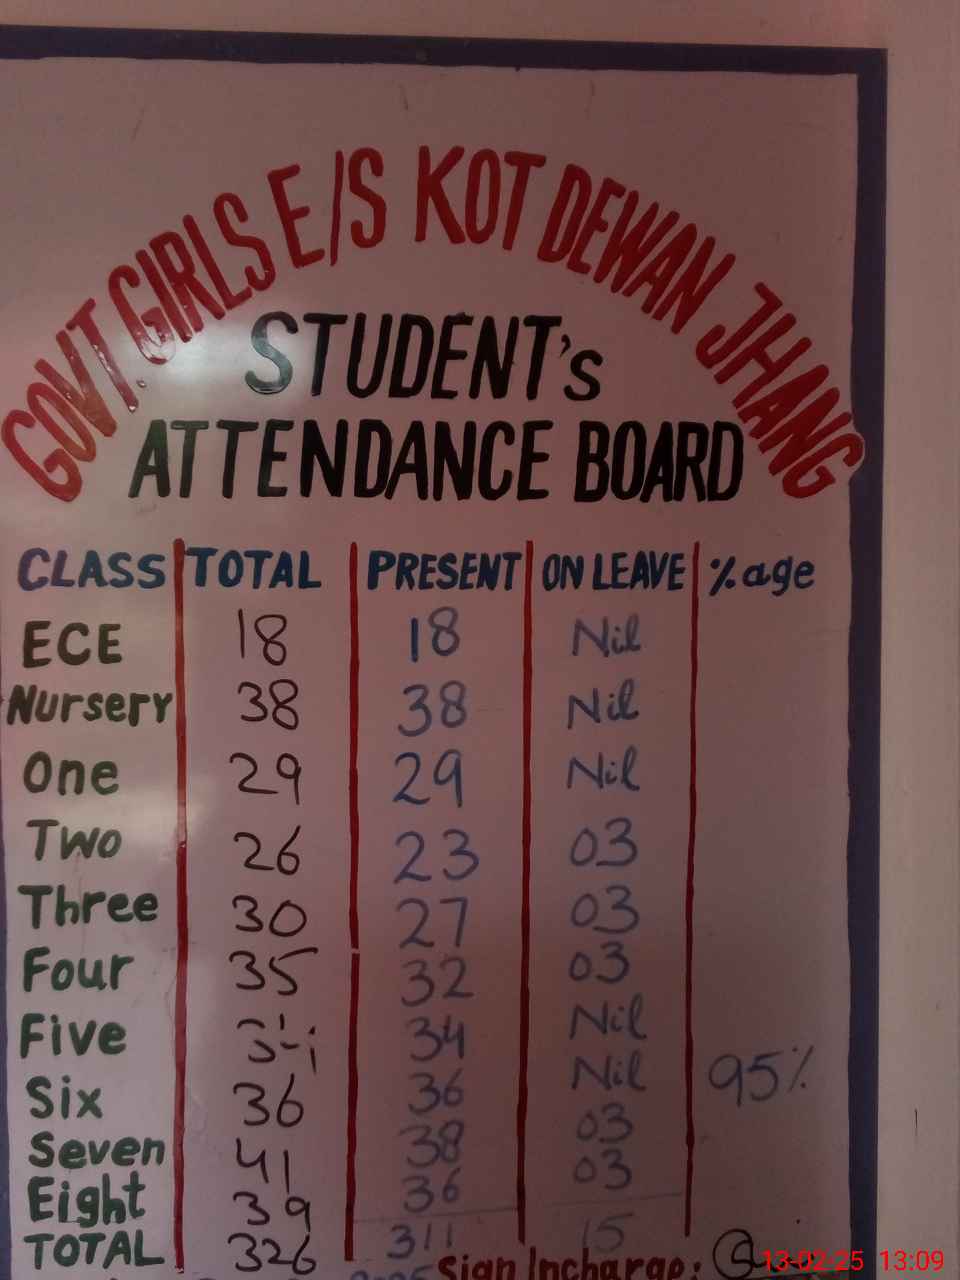 GOVT. GIRLS E/S KOT DEWAN JHANG
STUDENT's
ATTENDANCE BOARD
CLASS TOTAL PRESENT ON LEAVE %age
ECE 18 18 Nil
Nursery 38 38 Nil
One 29 29 Nil
Two 26 23 03
Three 30 27 03
Four 35 32 03
Five 34 34 Nil
Six 36 36 Nil 95%
Seven 41 38 03
Eight 39 36 03
TOTAL 326 311 15
Sign Incharge:
13-02-25 13:09